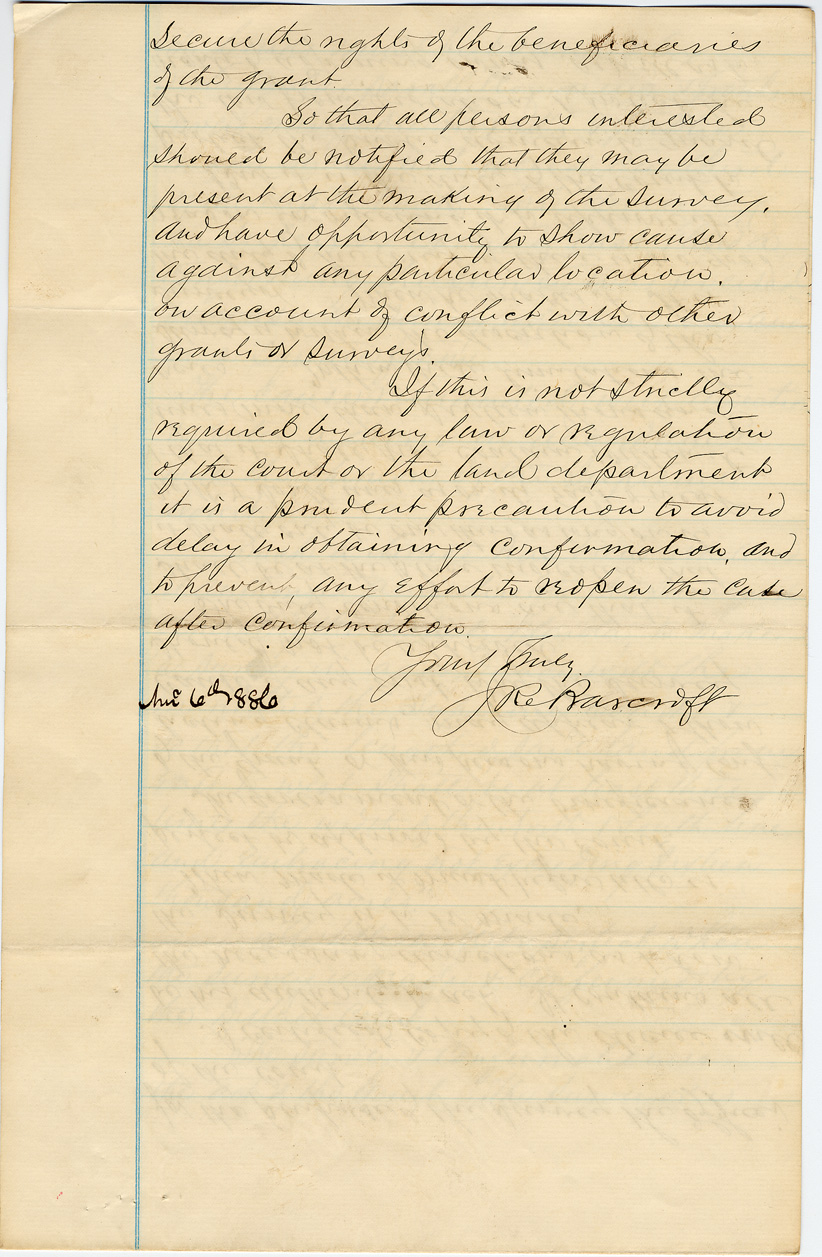 Secure the rights of the beneficiaries
of the grant.
So that all persons interested
should be notified that they may be
present at the making of the survey,
and have opportunity to show cause
against any particular location,
on account of conflict with other
grants or surveys.
If this is not strictly
required by any law or regulation
of the court or the land department
it is a prudent precaution to avoid
delay in obtaining confirmation, and
to prevent, any effort to reopen the case
after confirmation.
Yours Truly,
6th 1886